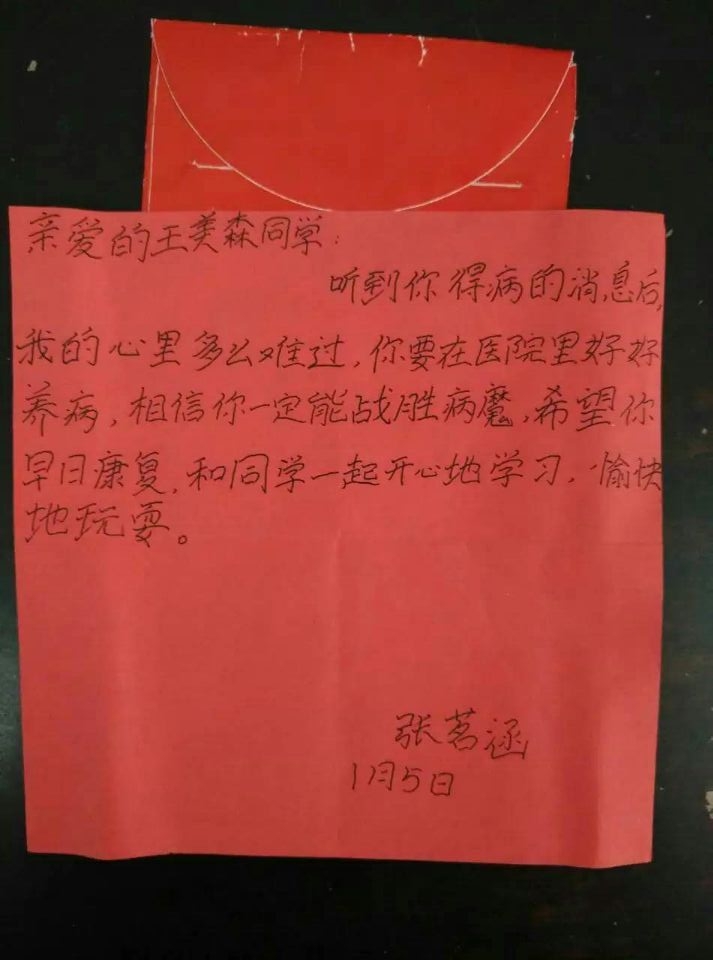 亲爱的王美森同学：
听到你得病的消息后，
我的心里多么难过，你要在医院里好好
养病，相信你一定能战胜病魔，希望你
早日康复，和同学一起开心地学习，愉快
地玩耍。
张茗涵
1月5日